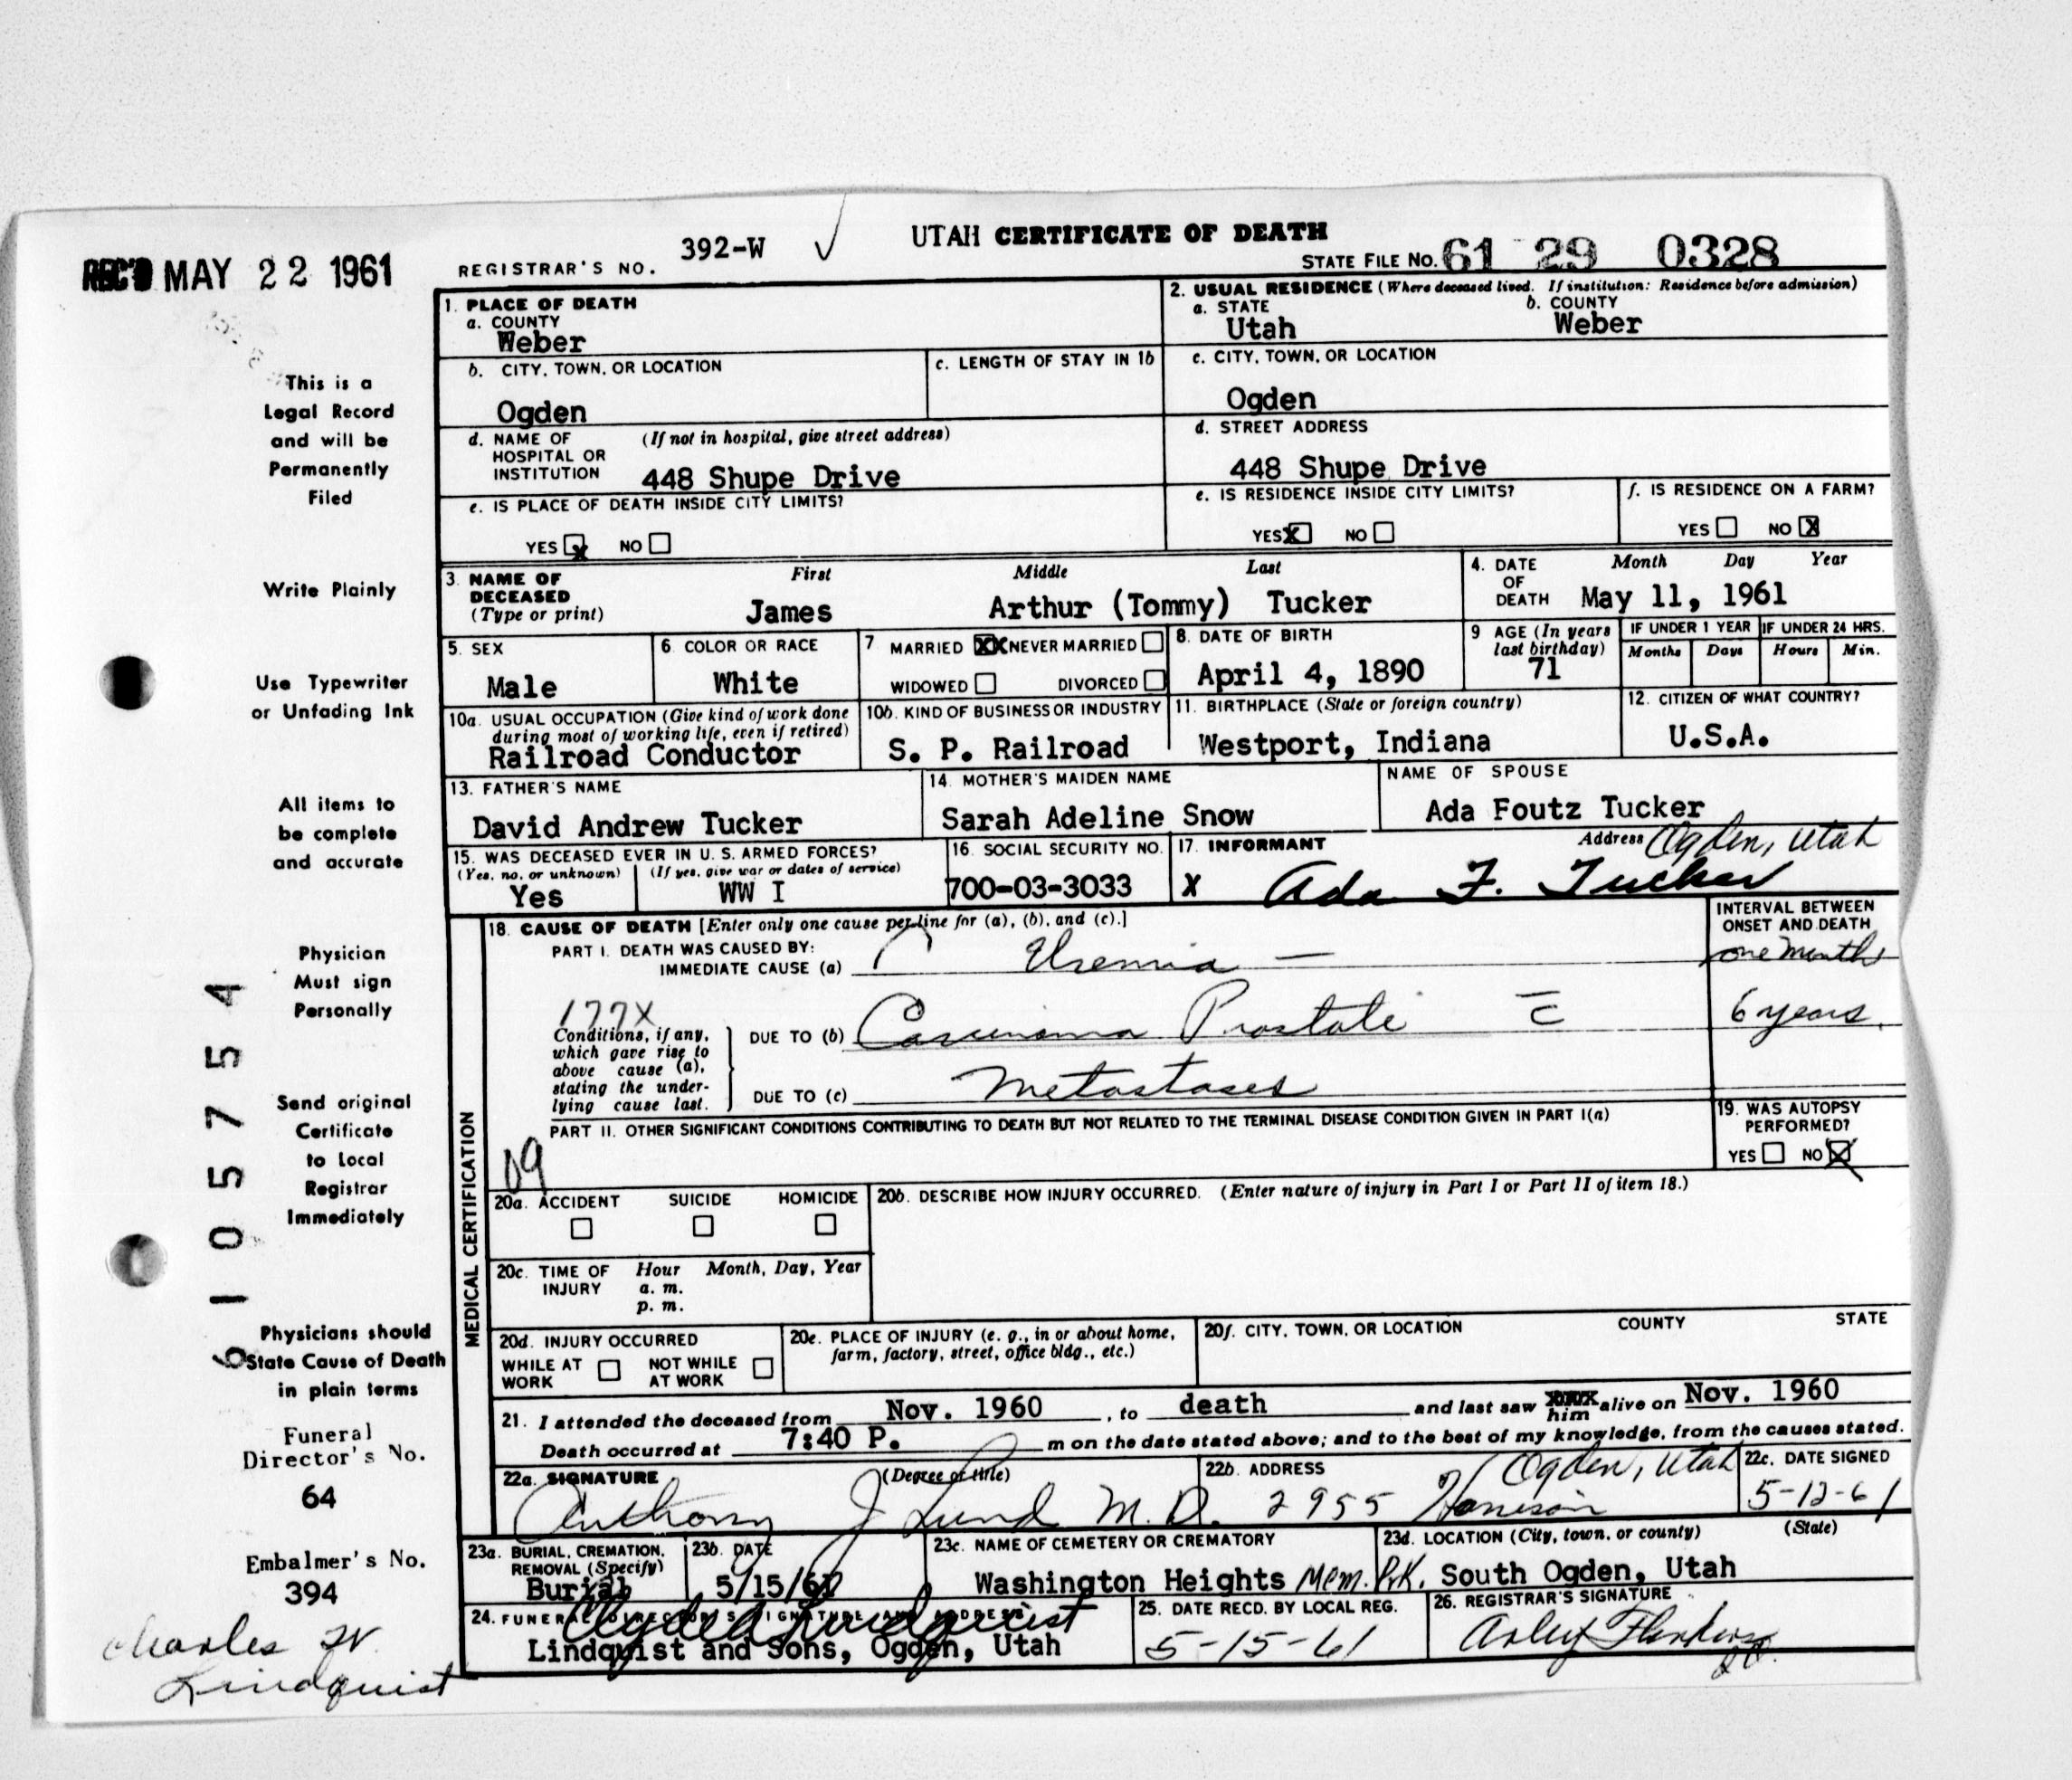 REC'D MAY 22 1961
REGISTRAR'S NO. 392-W
UTAH CERTIFICATE OF DEATH
STATE FILE NO. 61 29 0328
1. PLACE OF DEATH
a. COUNTY
Weber
2. USUAL RESIDENCE (Where deceased lived. If institution: Residence before admission)
a. STATE
Utah
b. COUNTY
Weber
b. CITY, TOWN, OR LOCATION
Ogden
c. LENGTH OF STAY IN 1b
c. CITY, TOWN, OR LOCATION
Ogden
d. NAME OF HOSPITAL OR INSTITUTION
(If not in hospital, give street address)
448 Shupe Drive
d. STREET ADDRESS
448 Shupe Drive
e. IS PLACE OF DEATH INSIDE CITY LIMITS?
YES X NO
e. IS RESIDENCE INSIDE CITY LIMITS?
YES X NO
f. IS RESIDENCE ON A FARM?
YES NO X
3. NAME OF DECEASED
(Type or print)
First Middle Last
James Arthur (Tommy) Tucker
4. DATE OF DEATH
Month Day Year
May 11, 1961
5. SEX
Male
6. COLOR OR RACE
White
7 MARRIED XX NEVER MARRIED
WIDOWED DIVORCED
8. DATE OF BIRTH
April 4, 1890
9 AGE (In years last birthday)
71
IF UNDER 1 YEAR
Months Days
IF UNDER 24 HRS.
Hours Min.
10a. USUAL OCCUPATION (Give kind of work done during most of working life, even if retired)
Railroad Conductor
10b. KIND OF BUSINESS OR INDUSTRY
S. P. Railroad
11. BIRTHPLACE (State or foreign country)
Westport, Indiana
12. CITIZEN OF WHAT COUNTRY?
U.S.A.
13. FATHER'S NAME
David Andrew Tucker
14. MOTHER'S MAIDEN NAME
Sarah Adeline Snow
NAME OF SPOUSE
Ada Foutz Tucker
15. WAS DECEASED EVER IN U. S. ARMED FORCES?
(Yes, no, or unknown) (If yes, give war or dates of service)
Yes WW I
16. SOCIAL SECURITY NO.
700-03-3033
17. INFORMANT
Address Ogden, Utah
X Ada F. Tucker
18. CAUSE OF DEATH [Enter only one cause per line for (a), (b), and (c).]
PART I. DEATH WAS CAUSED BY:
IMMEDIATE CAUSE (a) Uremia —
INTERVAL BETWEEN ONSET AND DEATH
one month
177X
Conditions, if any, which gave rise to above cause (a), stating the underlying cause last.
DUE TO (b) Carcinoma Prostate c̄
6 years.
DUE TO (c) Metastases
PART II. OTHER SIGNIFICANT CONDITIONS CONTRIBUTING TO DEATH BUT NOT RELATED TO THE TERMINAL DISEASE CONDITION GIVEN IN PART I(a)
09
19. WAS AUTOPSY PERFORMED?
YES NO X
MEDICAL CERTIFICATION
20a. ACCIDENT SUICIDE HOMICIDE
20b. DESCRIBE HOW INJURY OCCURRED. (Enter nature of injury in Part I or Part II of item 18.)
20c. TIME OF INJURY
Hour Month, Day, Year
a. m.
p. m.
20d. INJURY OCCURRED
WHILE AT WORK NOT WHILE AT WORK
20e. PLACE OF INJURY (e. g., in or about home, farm, factory, street, office bldg., etc.)
20f. CITY, TOWN, OR LOCATION COUNTY STATE
21. I attended the deceased from Nov. 1960, to death and last saw him alive on Nov. 1960
Death occurred at 7:40 P. m on the date stated above; and to the best of my knowledge, from the causes stated.
22a. SIGNATURE (Degree or title)
Anthony J Lund M.D.
22b. ADDRESS
Ogden, Utah
2955 Harrison
22c. DATE SIGNED
5-12-61
23a. BURIAL, CREMATION, REMOVAL (Specify)
Burial
23b. DATE
5/15/61
23c. NAME OF CEMETERY OR CREMATORY
Washington Heights Mem. Prk.
23d. LOCATION (City, town, or county) (State)
South Ogden, Utah
24. FUNERAL DIRECTOR'S SIGNATURE AND ADDRESS
Clyde A Lindquist
Lindquist and Sons, Ogden, Utah
25. DATE RECD. BY LOCAL REG.
5-15-61
26. REGISTRAR'S SIGNATURE
This is a
Legal Record
and will be
Permanently
Filed
Write Plainly
Use Typewriter
or Unfading Ink
All items to
be complete
and accurate
Physician
Must sign
Personally
Send original
Certificate
to Local
Registrar
Immediately
Physicians should
State Cause of Death
in plain terms
6105754
Funeral
Director's No.
64
Embalmer's No.
394
Charles W.
Lindquist